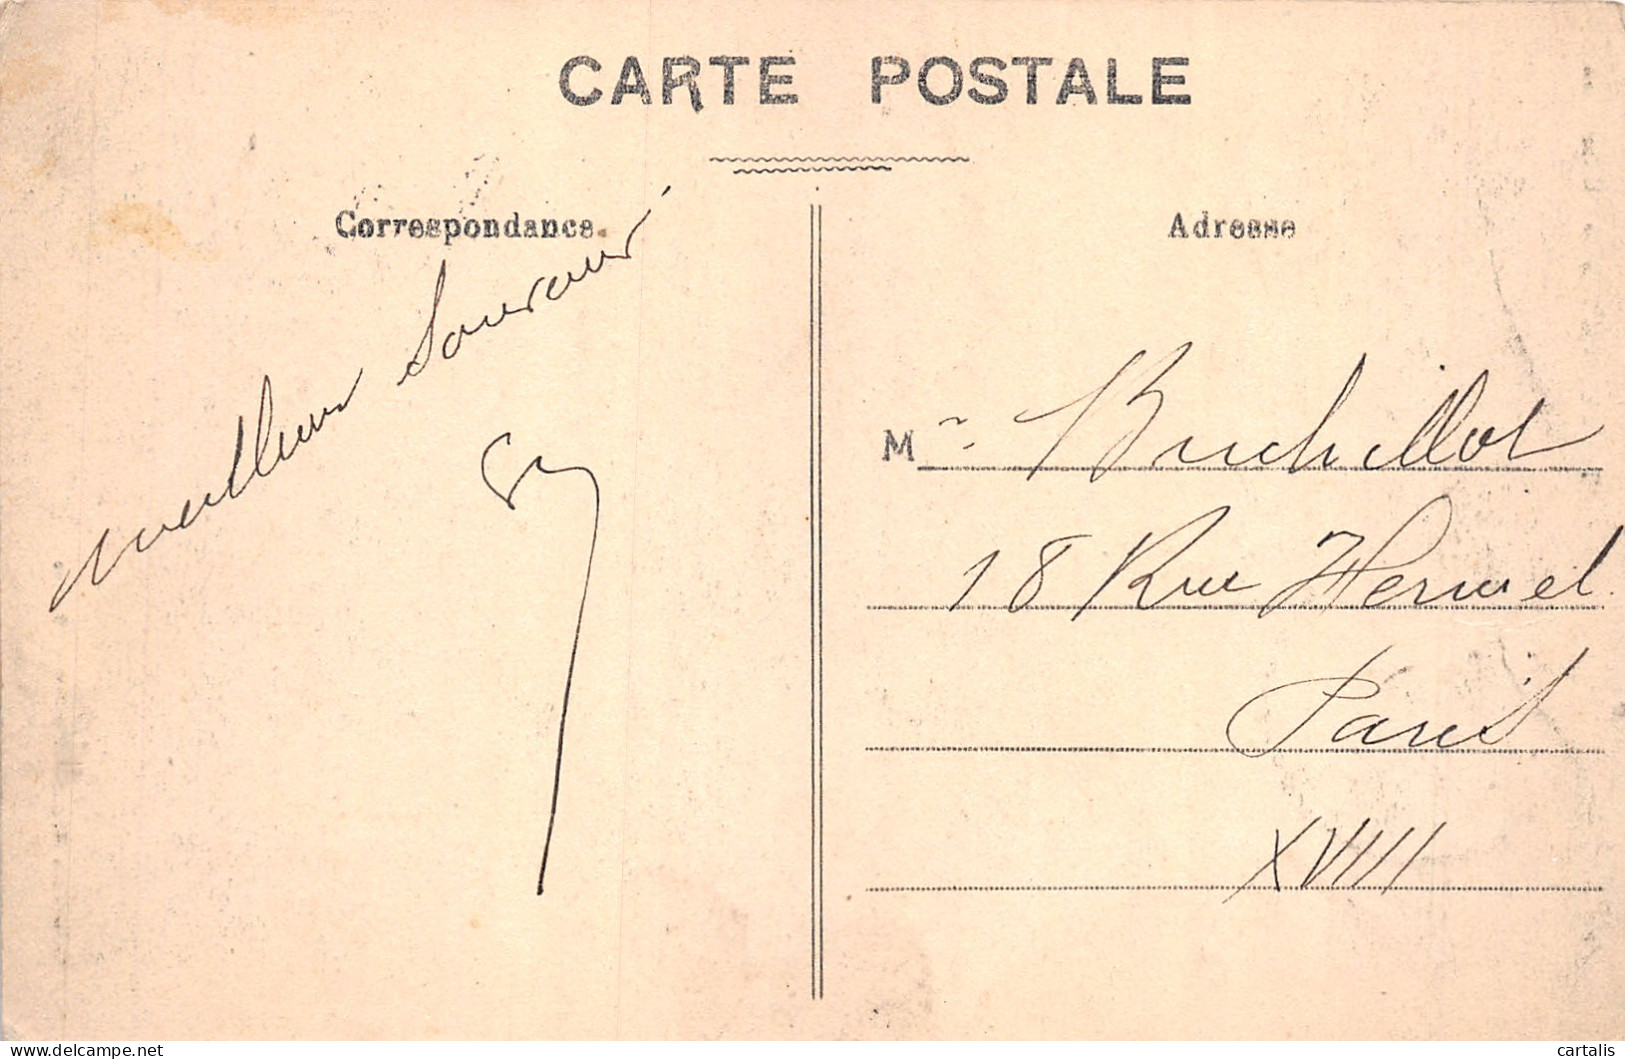 CARTE POSTALE
Correspondance.
Adresse
Meilleurs Souvenirs
Mr Buchillot
18 Rue Hermel
Paris
XVIII
cartalis